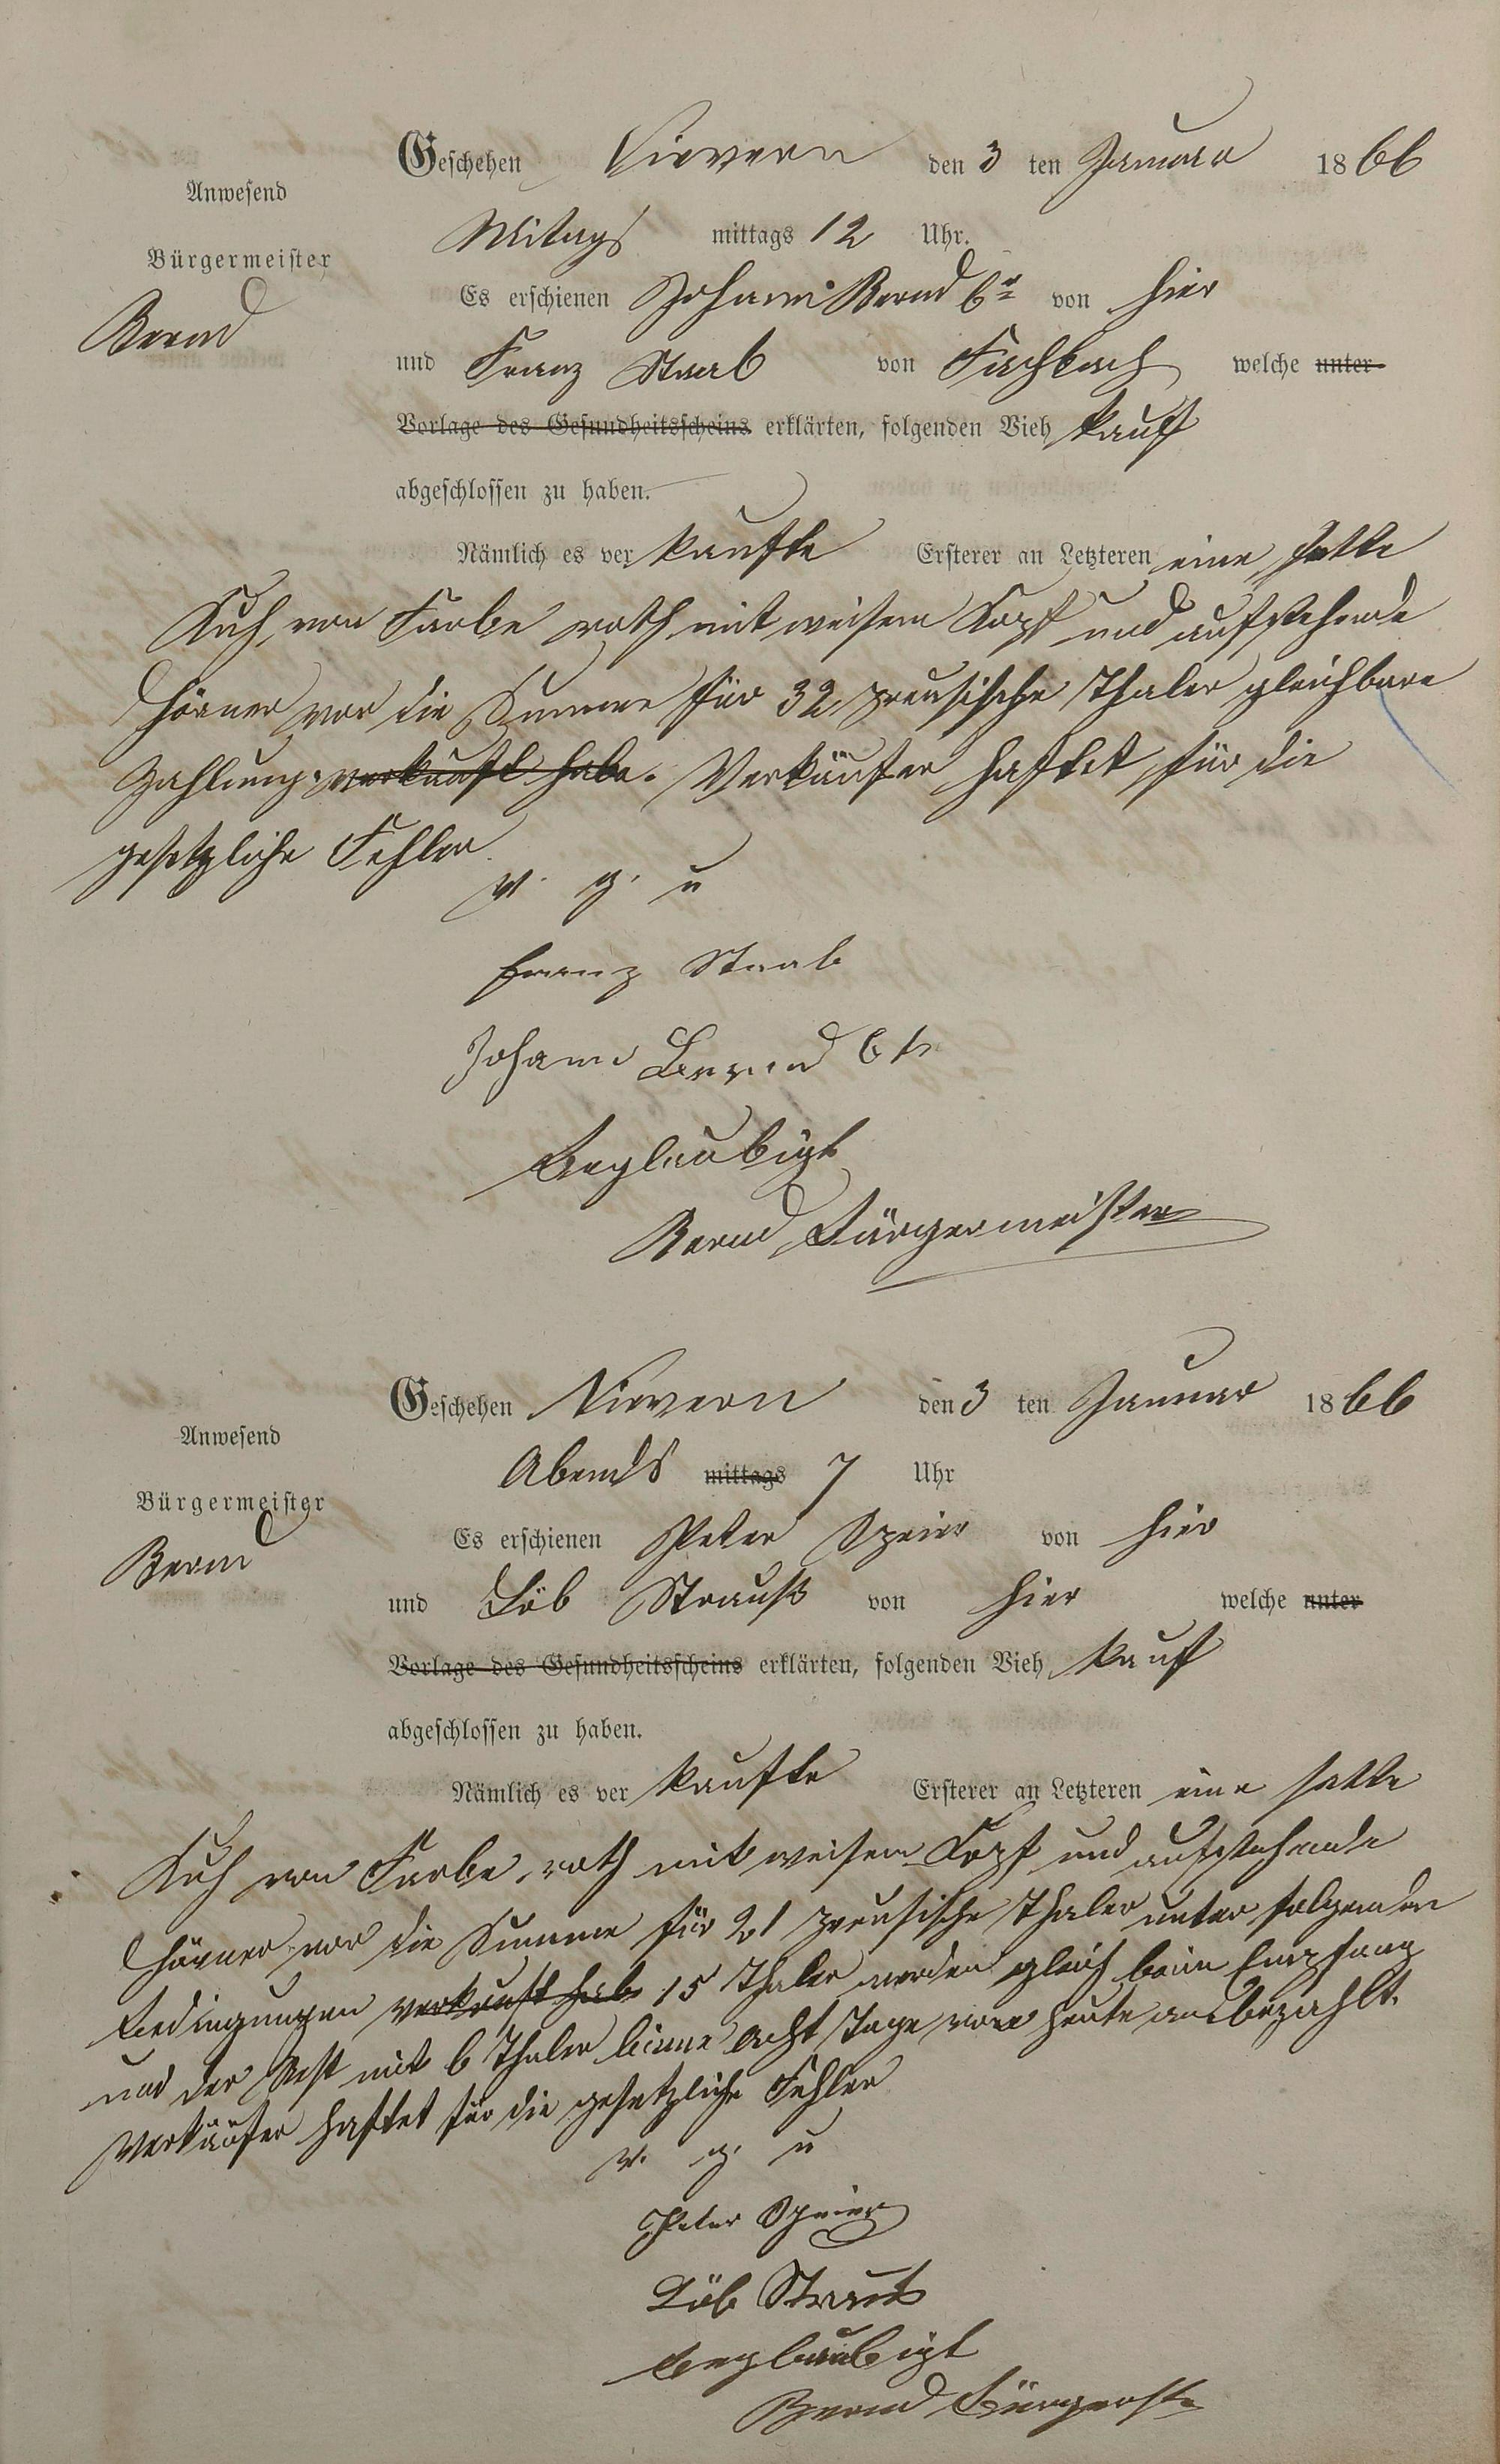 Geschehen Nievern den 3 ten Januar 1866
Anwesend
Mitags mittags 12 Uhr.
Bürgermeister
Es erschienen Johann Bernd 6r von hier
Bernd
und Franz Staab von Fachbach welche unter
Vorlage des Gesundheitsscheins erklärten, folgenden Vieh kauf
abgeschlossen zu haben.
Nämlich es ver kaufte Ersterer an Letzteren eine fette
Kuh, von Farbe roth mit weisem Kopf und aufstehende
Hörner vor die Summe für 32 preusische Thaler gleichbare
Zahlung. verkauft habe. Verkäufer haftet für die
gesetzliche Fehler
v. g. u
Franz Staab
Johann Bernd 6r
Beglaubigt
Bernd Bürgermeister
Geschehen Nievern den 3 ten Januar 1866
Anwesend
Abends mittags 7 Uhr
Bürgermeister
Es erschienen Peter Speier von hier
Bernd
und Löb Strauß von hier welche unter
Vorlage des Gesundheitsscheins erklärten, folgenden Vieh kauf
abgeschlossen zu haben.
Nämlich es ver kaufte Ersterer an Letzteren eine fette
Kuh von Farbe roth mit weisem Kopf und aufstehende
Hörner vor die Summe für 21 preusische Thaler unter folgenden
Bedingungen verkauft habe 15 Thaler werden gleich beim Empfang
und der Rest mit 6 Thaler binne acht Tage von heute an bezahlt.
Verkäufer haftet für die gesetzliche Fehler
v. g. u
Peter Speier
Löb Straus
Beglaubigt
Bernd Bürgerstr